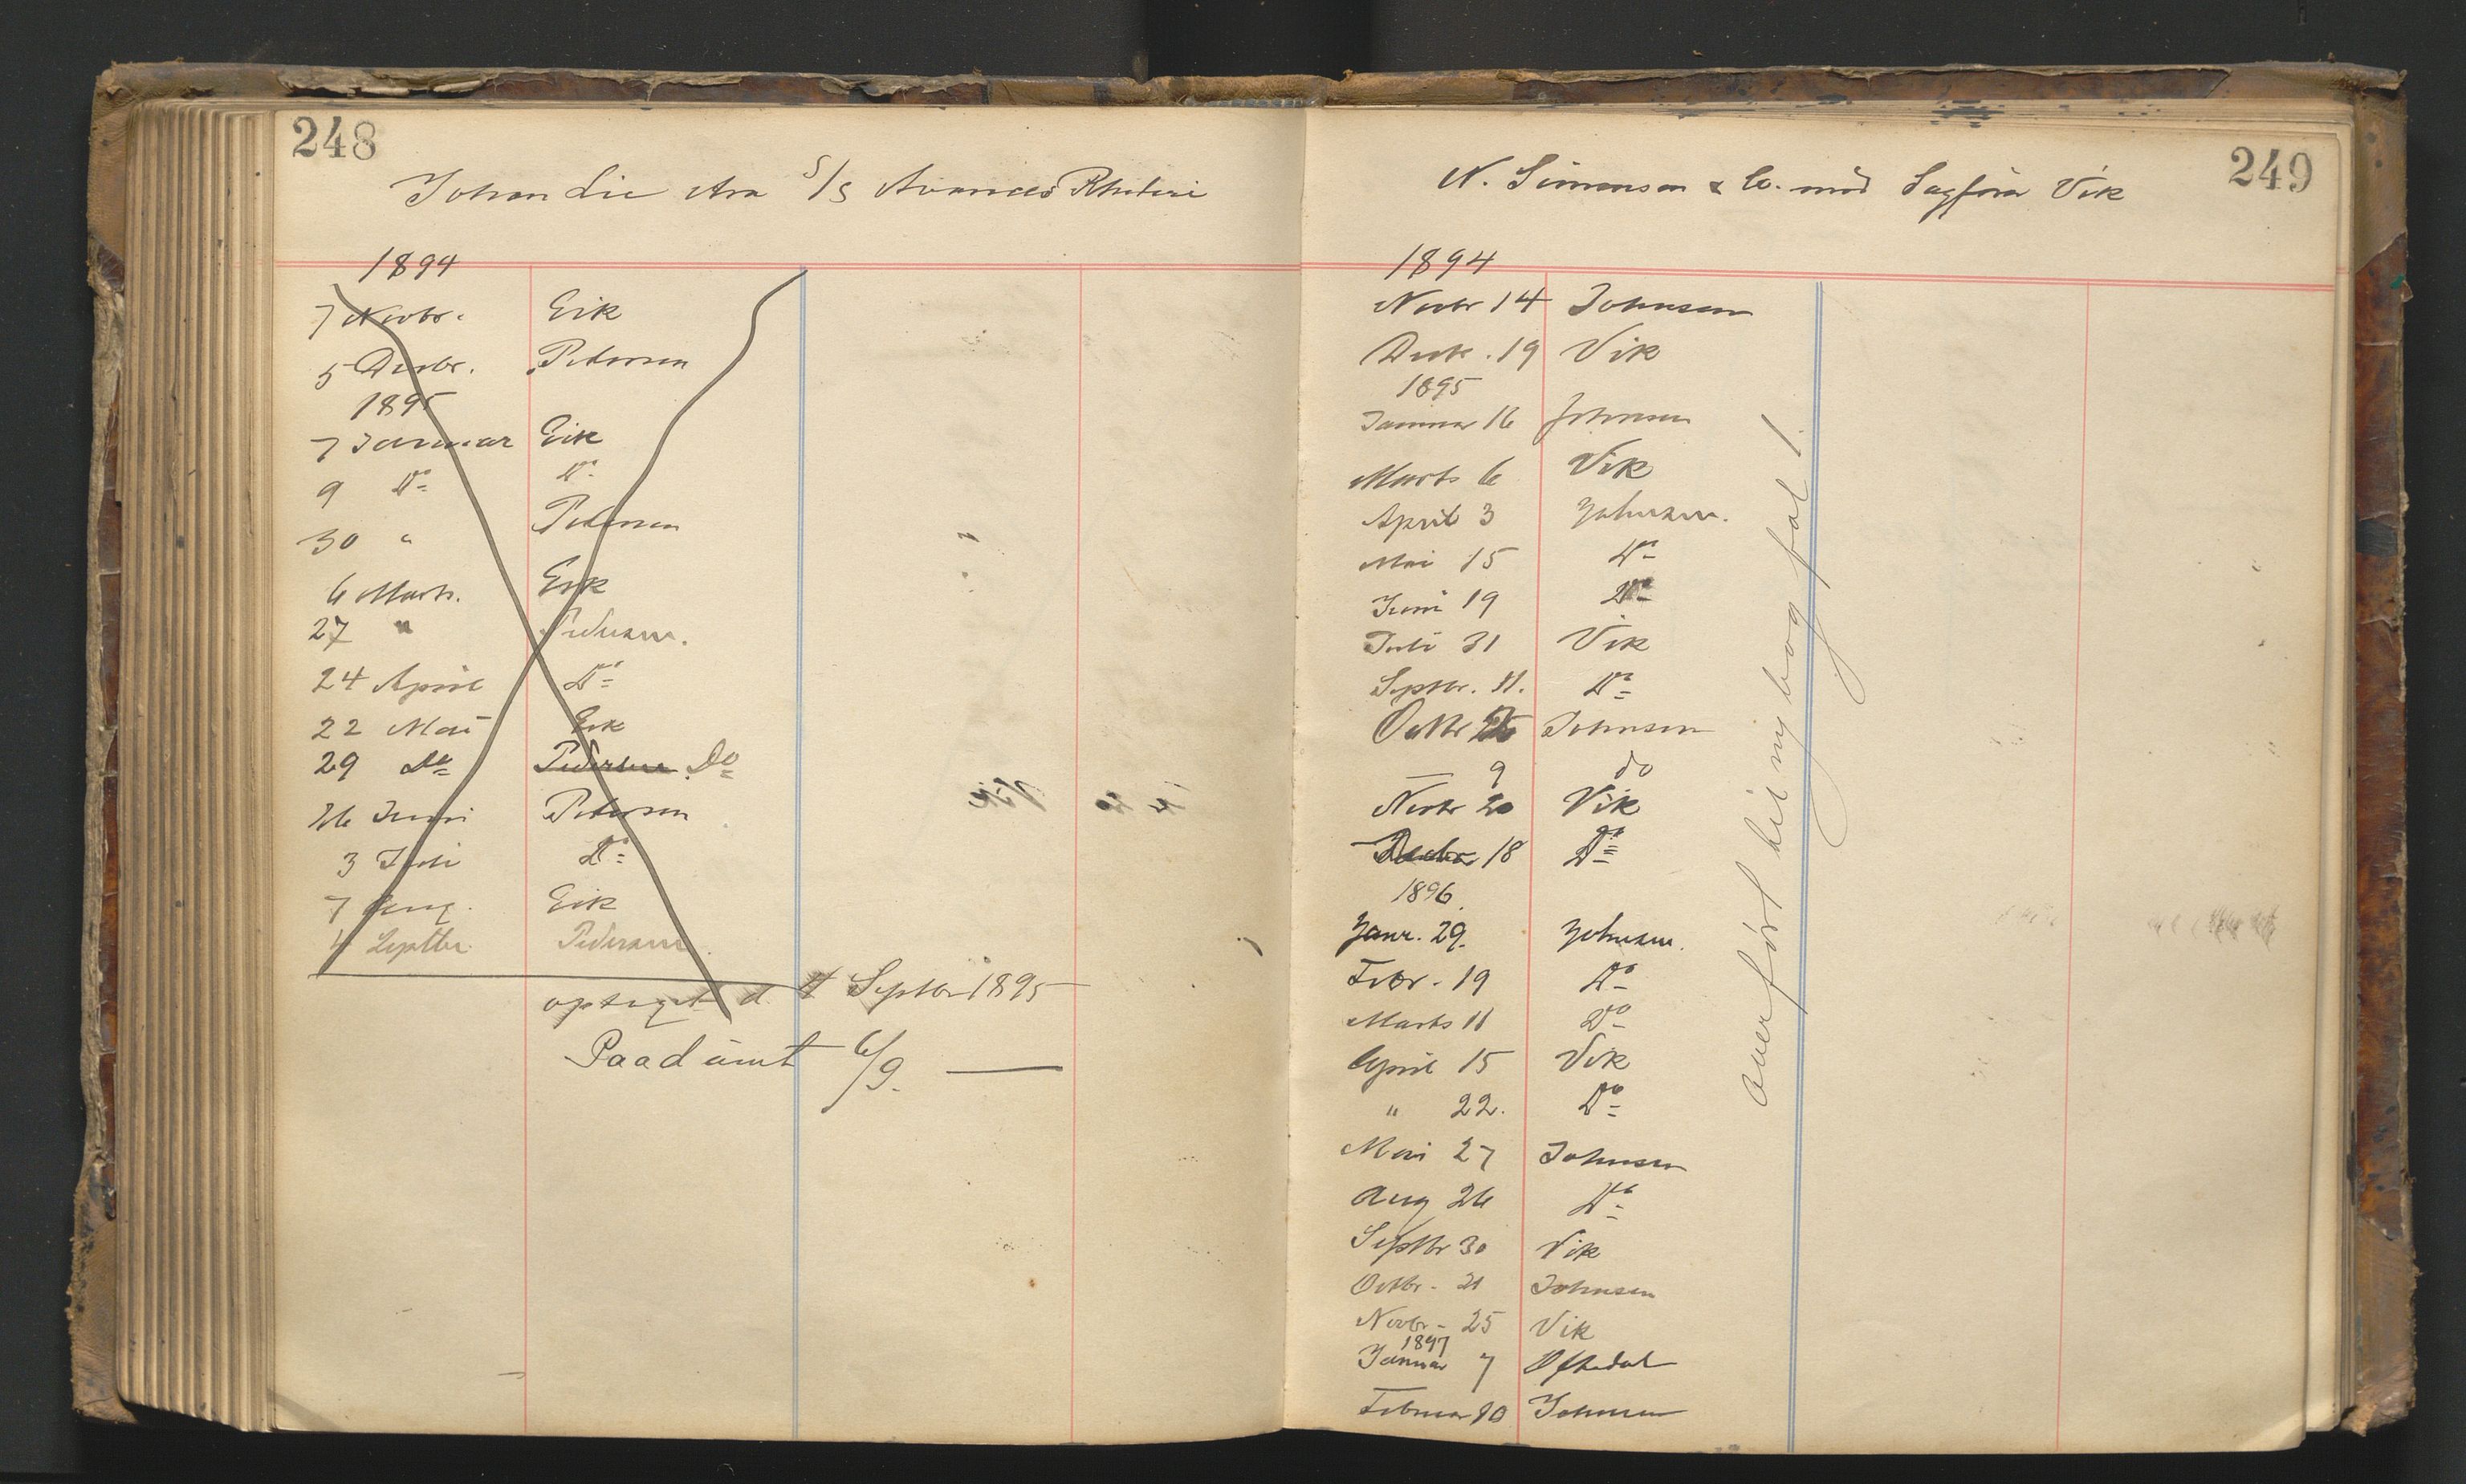 248
Johan Lie
1894
7 Novbr. Eik
5 Decbr. Pedersen
1895
7 Januar Eik
9 Do Do
30 " Pedersen
6 Marts. Eik
27 " Pedersen.
24 April Do
22 Mai Eik
29 Do Pedersen Do
26 Juni Pedersen
3 Juli Do
7 Aug. Eik
4 Septbr. Pedersen.
optaget d. 4 Septbr 1895
Paadømt 6/9. —
249
N. Simonsen & Co. mod Sagfører Vik
1894
Novbr 14 Johnsen
Decbr. 19 Vik
1895
Januar 16 Johnsen
Marts 6 Vik
April 3 Johnsen.
Mai 15 Do
Juni 19 Do
Juli 31 Vik
Septbr. 11. Do
Octbr Johnsen
9 do
Novbr 20 Vik
Decbr 18 Do
1896.
Janr. 29. Johnsen.
Febr. 19 Do
Marts 11 Do
April 15 Vik
" 22. Do
Mai 27 Johnsen
Aug 26 Do
Septbr 30 Vik
Octbr. 21 Johnsen
Novbr. 25 Vik
1897
Januar 7 Oftedal
Februar 10 Johnsen
overført til ny bog fol 1.